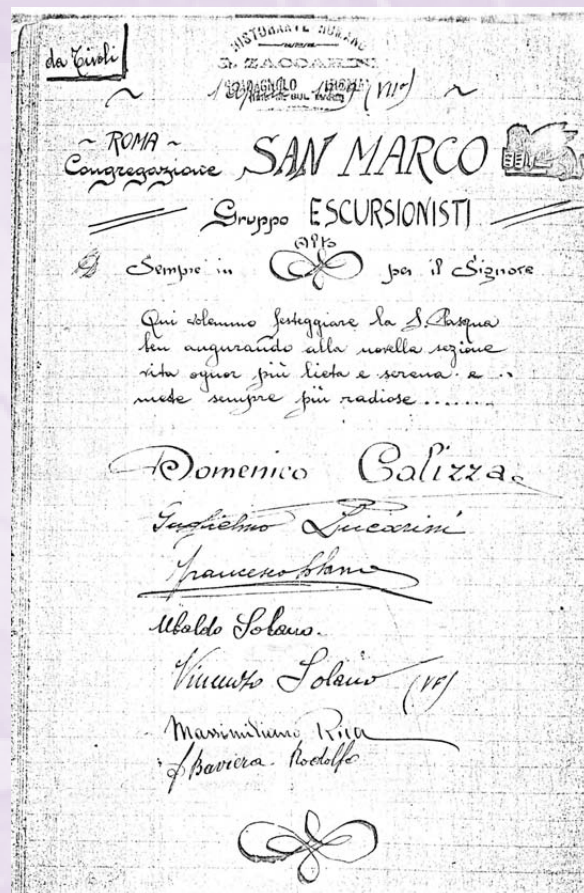 da Tivoli
RISTORANTE ROMANO
ZACCARINI
(VII°)
~ ROMA ~
Congregazione SAN MARCO
Gruppo ESCURSIONISTI
Sempre in alto per il Signore
Qui volemmo festeggiare la S. Pasqua
ben augurando alla novella sezione
vita ognor più lieta e serena e ..
mete sempre più radiose .......
Domenico Calizza
Guglielmo Lucarini
Francesco
Ubaldo Solano.
Vincenzo Solano (VF)
Massimiliano Riga
Baviera Rodolfo